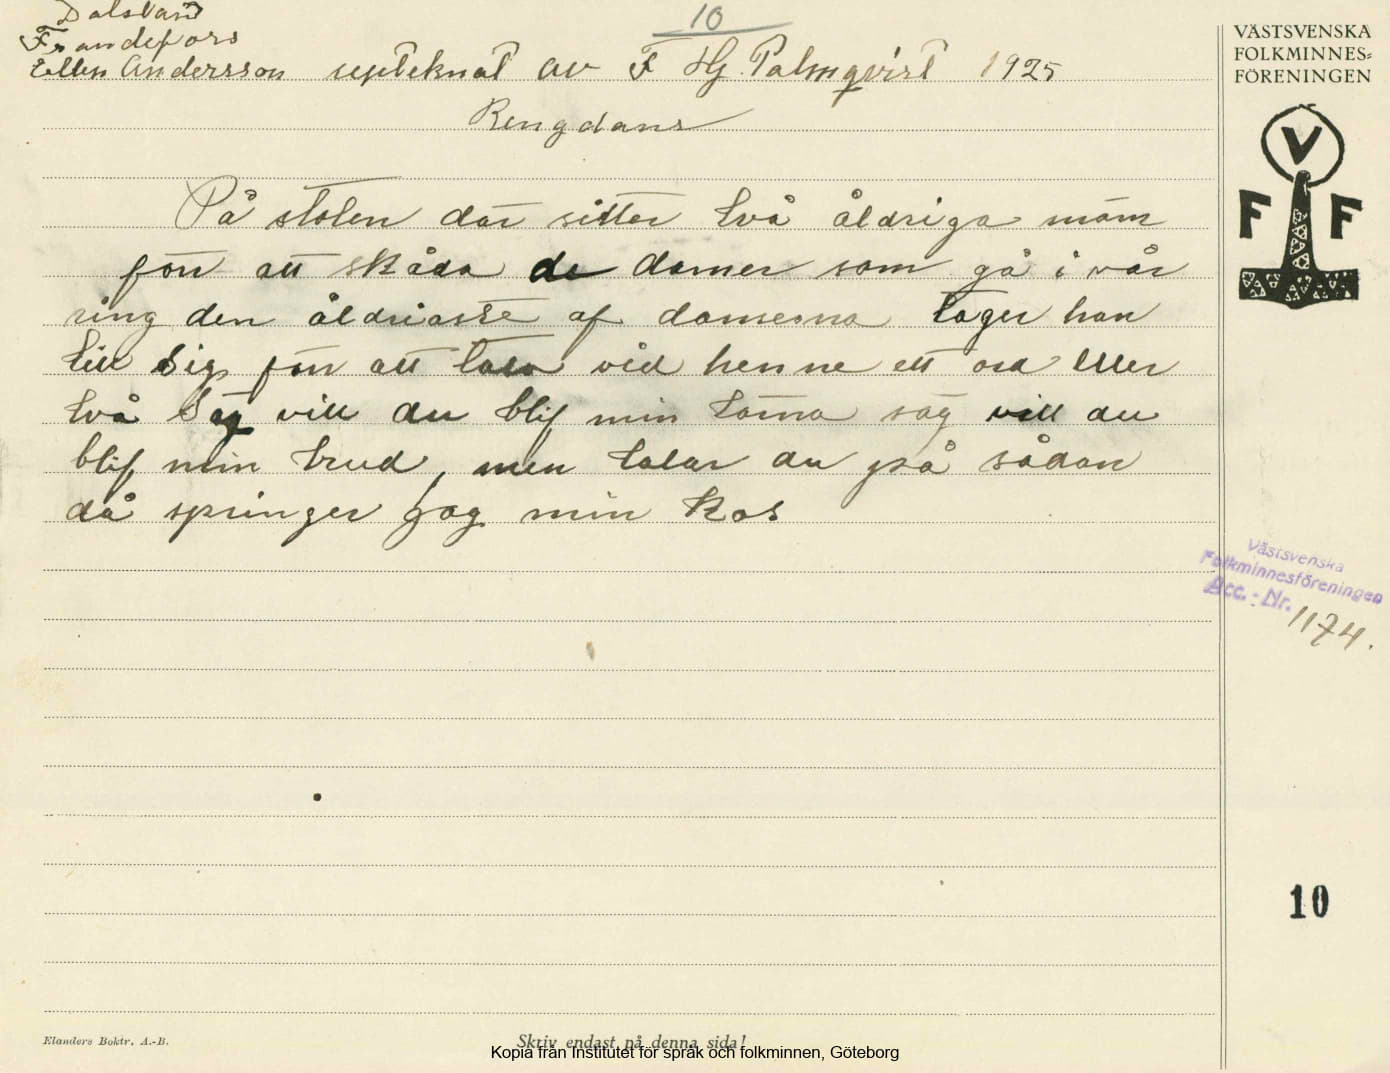 10
Dalsland
Frändefors
Ellen Andersson upteknat av F Hj. Palmqvist 1925
Rengdans
På stolen där sitter två åldriga mäm
förr att skåda de damer som gå i vår
ring den åldriaste af damerna tager han
till sig förr att tala vid henne ett ord eller
två Säg vill du blif min tärna säg vill du
blif min brud, men talar du på sådan
då springer jag min kos
VÄSTSVENSKA
FOLKMINNES-
FÖRENINGEN
V
F F
Västsvenska
Folkminnesföreningen
Acc.-Nr. 1174.
10
Elanders Boktr. A.-B.
Skriv endast på denna sida!
Kopia från Institutet för språk och folkminnen, Göteborg